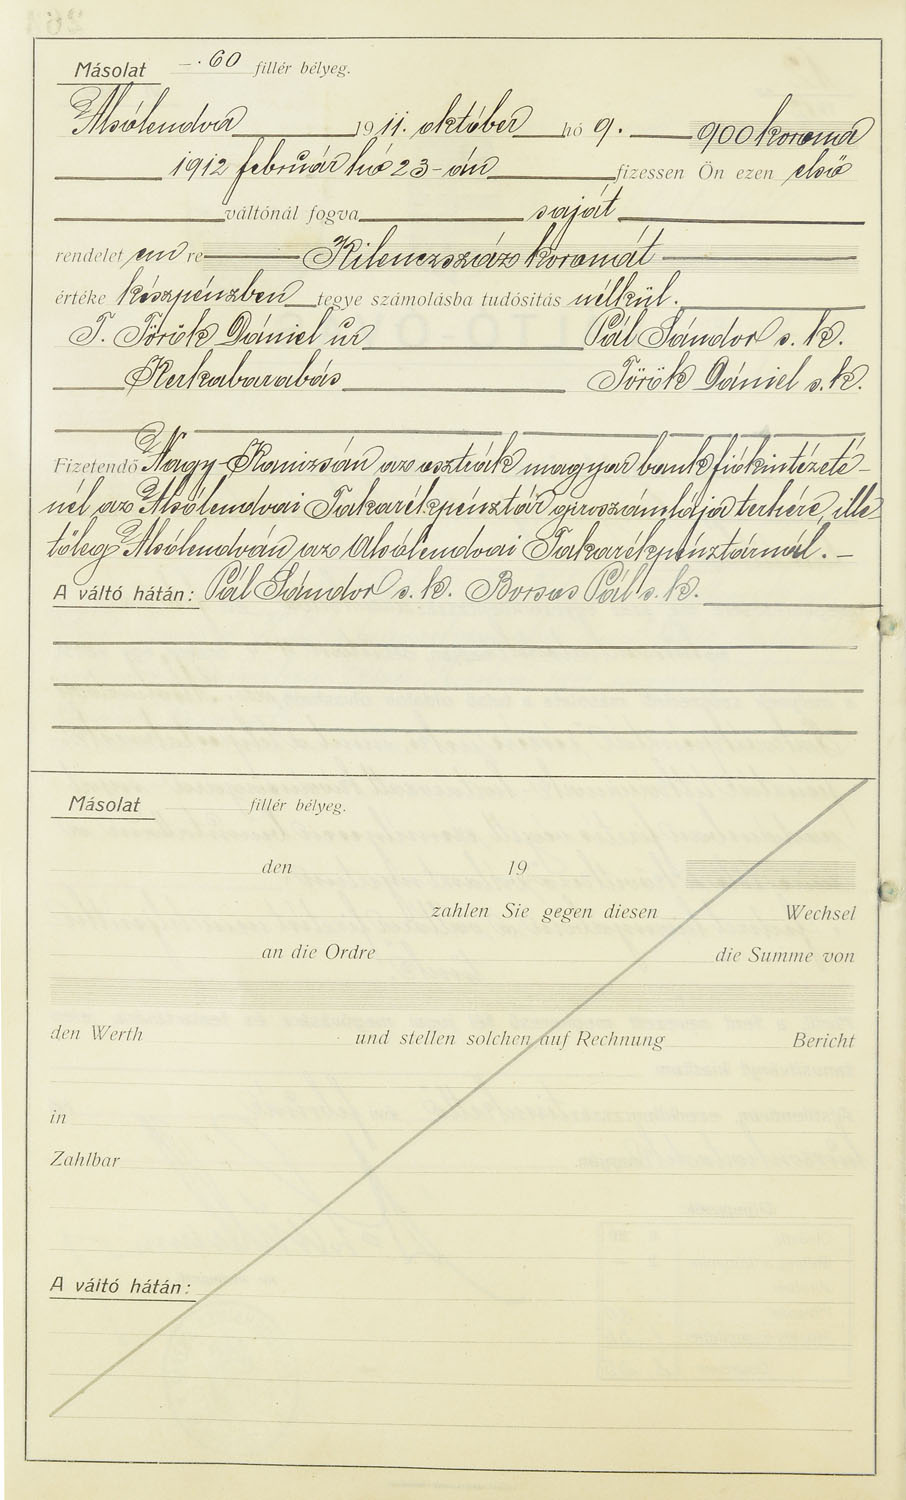 Másolat —.60 fillér bélyeg.
Alsólendva 1911. október hó 9. 900 korona
1912 február hó 23-án fizessen Ön ezen első
váltónál fogva saját
rendelet em re Kilenczszáz koronát
értéke készpénzben tegye számolásba tudósitás nélkül.
T. Török Dániel úr Pál Sándor s. k.
Kerkabarabás Török Dániel s. k.
Fizetendő Nagy-Kanizsán az osztrák magyar bank fiókintézeté-
nél az Alsólendvai Takarékpénztár giroszámlája terhére, ille-
tőleg Alsólendván az Alsólendvai Takarékpénztárnál. —
A váltó hátán: Pál Sándor s. k. Borsos Pál s. k.
Másolat fillér bélyeg.
den 19
zahlen Sie gegen diesen Wechsel
an die Ordre die Summe von
den Werth und stellen solchen auf Rechnung Bericht
in
Zahlbar
A váltó hátán: